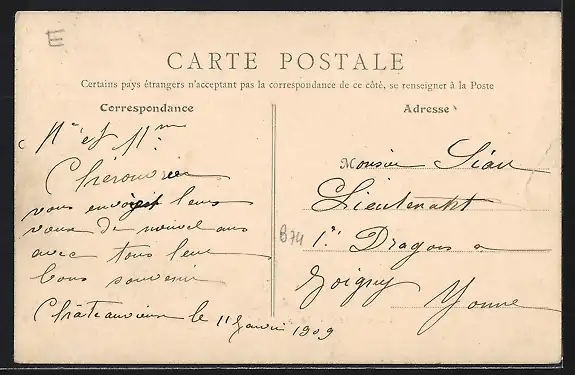 E
CARTE POSTALE
Certains pays étrangers n'acceptant pas la correspondance de ce côté, se renseigner à la Poste
Correspondance
Adresse
Mr et Mme
vous envoient leurs
vœux de nouvel ans
avec tous leur
bons souvenir
le 11 Janvier 1909
Monsieur
Lieutenant
B74
1er Dragons a
Joigny
Yonne